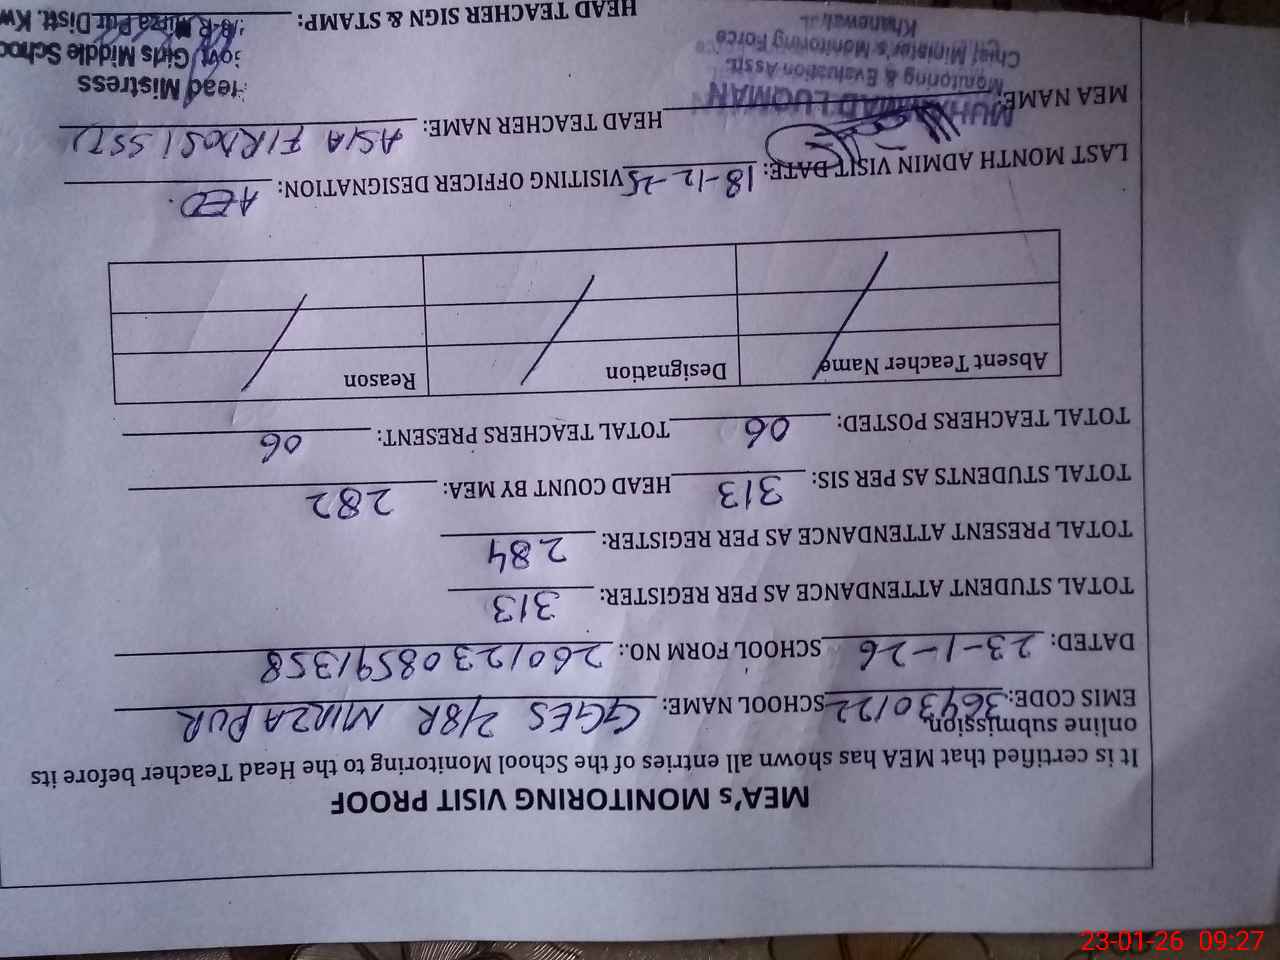 MEA's MONITORING VISIT PROOF
It is certified that MEA has shown all entries of the School Monitoring to the Head Teacher before its
online submission.
EMIS CODE: 36430122 SCHOOL NAME: GGES 2/8R MIRZA PUR
DATED: 23-1-26 SCHOOL FORM NO.: 26012308591358
TOTAL STUDENT ATTENDANCE AS PER REGISTER: 313
TOTAL PRESENT ATTENDANCE AS PER REGISTER: 284
TOTAL STUDENTS AS PER SIS: 313 HEAD COUNT BY MEA: 282
TOTAL TEACHERS POSTED: 06 TOTAL TEACHERS PRESENT: 06
Absent Teacher Name Designation Reason
LAST MONTH ADMIN VISIT DATE: 18-12-25 VISITING OFFICER DESIGNATION: AEO.
MEA NAME: HEAD TEACHER NAME: ASIA FIRDOS (SST)
MUHAMMAD LUQMAN
Monitoring & Evaluation Asstt.
Chief Minister's Monitoring Force
Khanewal
HEAD TEACHER SIGN & STAMP:
Head Mistress
Govt Girls Middle Schoo
Mirza Pur Distt. Kw
23-01-26 09:27